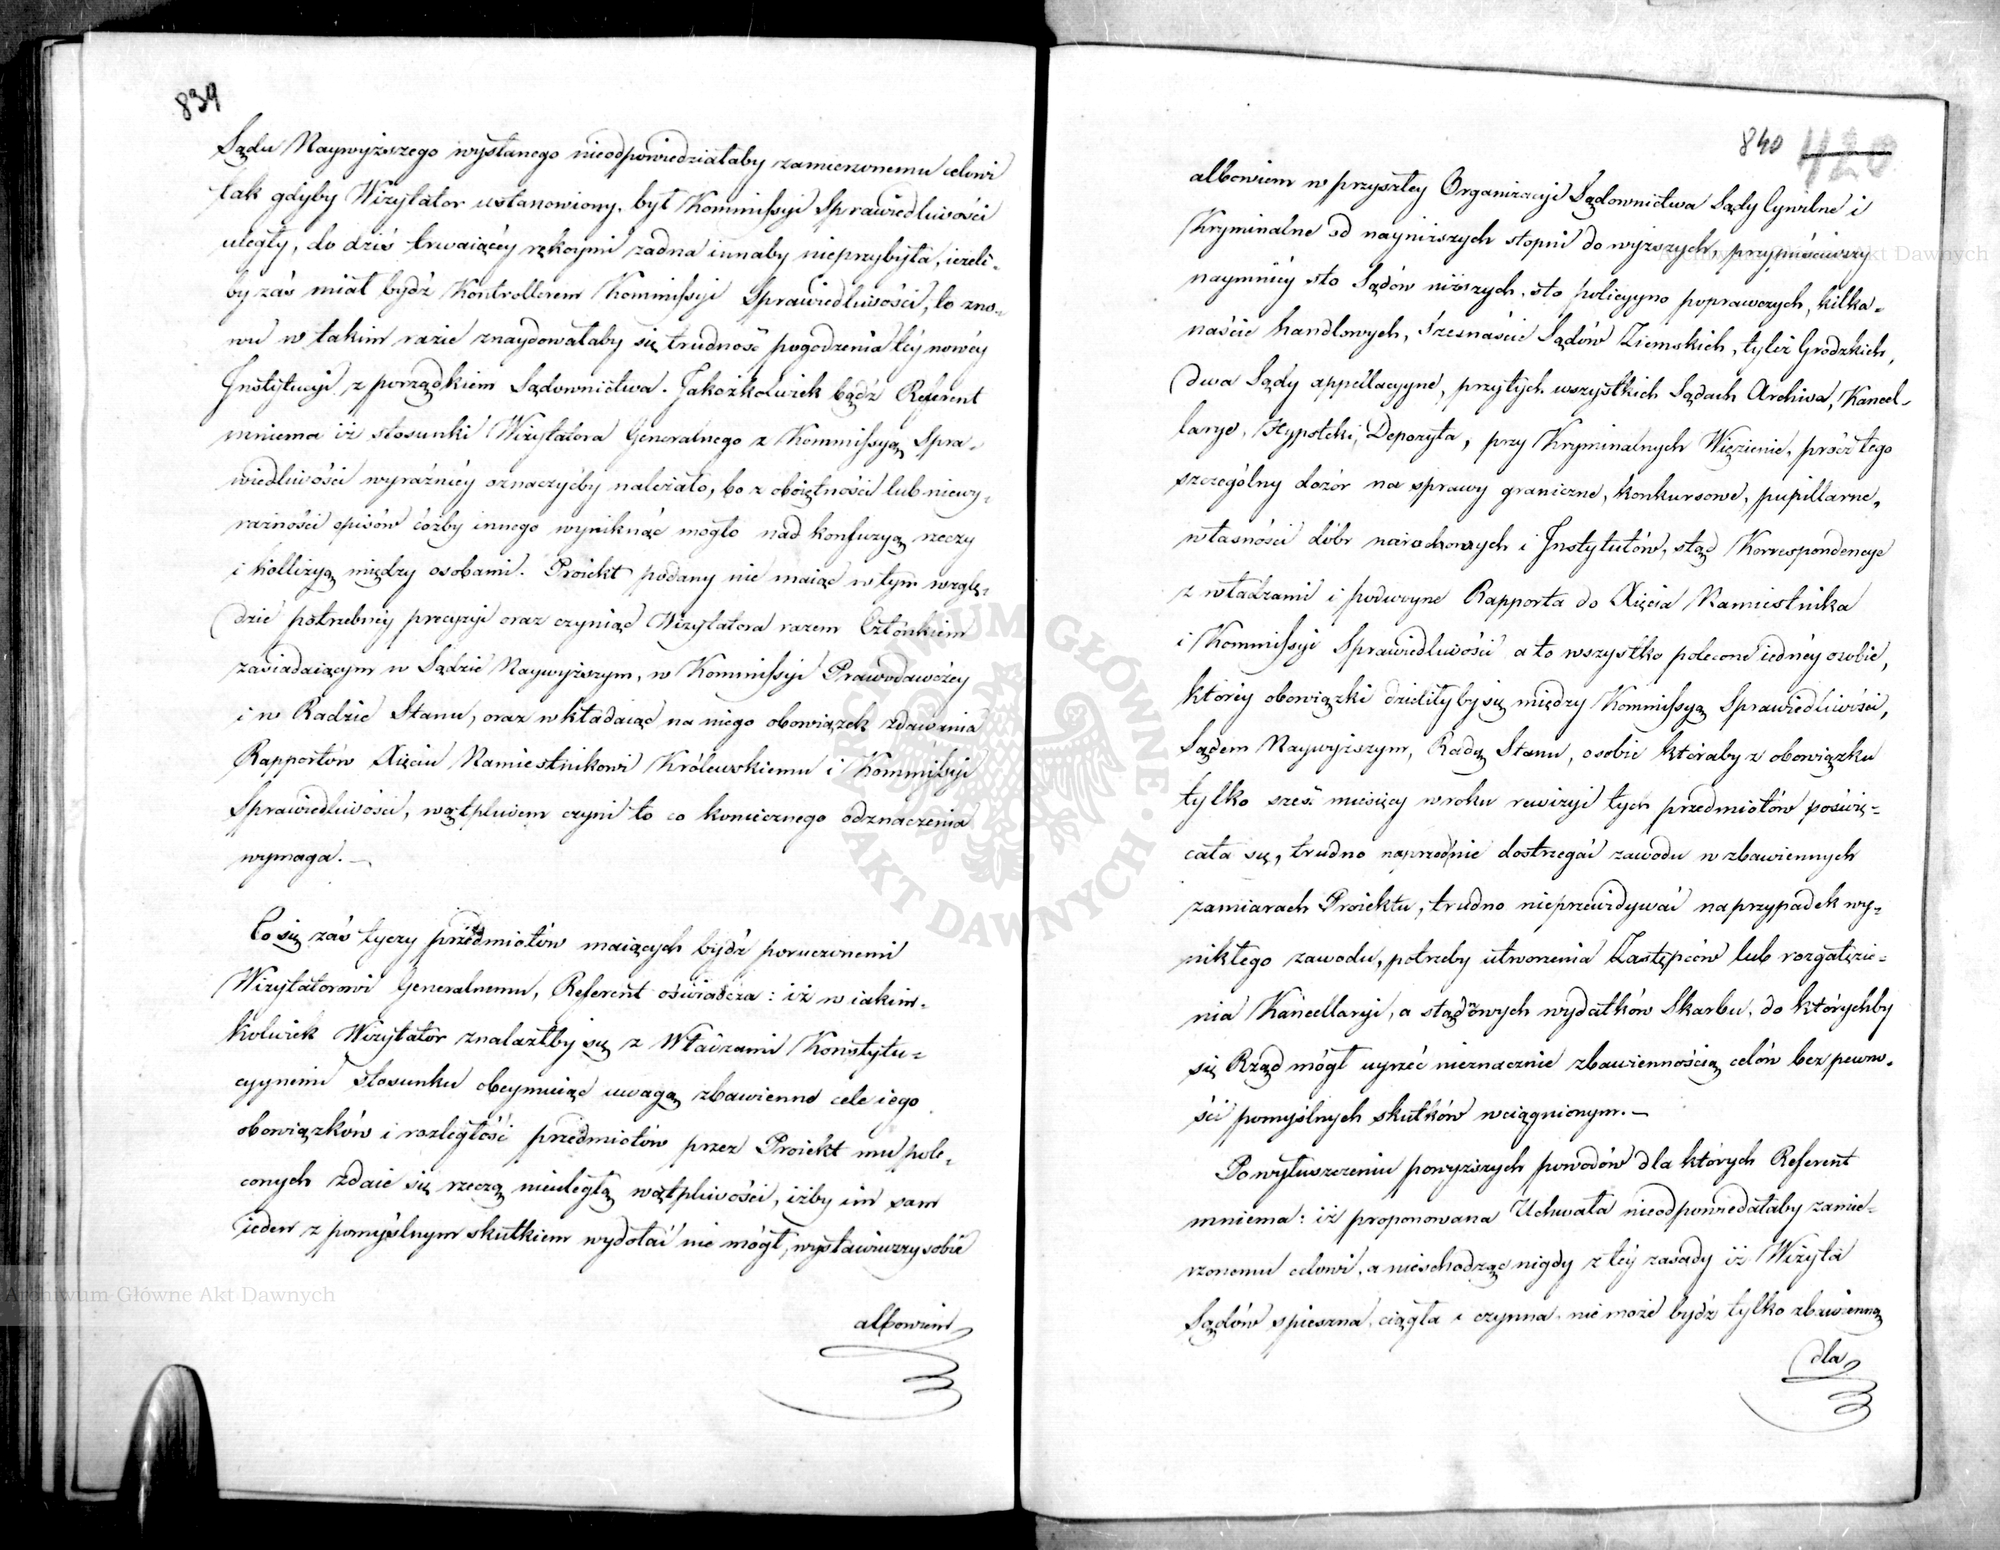 839
Sądu Naywyższego wysłanego nieodpowiedziałaby zamierzonemu celowi
tak gdyby Wizytator ustanowiony, był Kommissyi Sprawiedliwości
uległy, do dziś trwaiącéy rękoymi żadna innaby nieprzybyła, ieżeli-
by zaś miał bydź Kontrollerem Kommissyi Sprawiedliwości, to zno-
wu w takim razie znaydowałaby się trudność pogodzenia téy nowéy
Instytucyi z porządkiem Sądownictwa. Jakożkolwiek bądź Referent
mniema iż stosunki Wizytatora Generalnego z Kommissyą Spra-
wiedliwości wyraźniéy oznaczyćby należało, bo z oboiętności lub niewy-
raźności opisów cóżby innego wyniknąć mogło nad konfuzyą rzeczy
i kollizyą między osobami. Proiekt podany nie maiąc w tym wzglę-
dzie potrzebnéy precyzyi oraz czyniąc Wizytatora razem Członkiem
zasiadaiącym w Sądzie Naywyższym, w Kommissyi Prawodawczéy
i w Radzie Stanu, oraz wkładaiąc na niego obowiązek zdawania
Rapportów Xięciu Namiestnikowi Królewskiemu i Kommissyi
Sprawiedliwości, wątpliwem czyni to co koniecznego odznaczenia
wymaga. —
Co się zaś tyczy przedmiotów maiących bydź poruczonemi
Wizytatorowi Generalnemu, Referent oświadcza: iż w iakim-
kolwiek Wizytator znalazłby się z Władzami Konstytu-
cyynemi stosunku obeymuiąc uwagą zbawienne cele iego
obowiązków i rozległość przedmiotów przez Proiekt mu pole-
conych zdaie się rzeczą nieuległą wątpliwości, iżby im sam
ieden z pomyślnym skutkiem wydołać nie mógł, wystawiwszy sobie
albowiem
840 420
albowiem w przyszłey Organizacyi Sądownictwa Sądy Cywilne i
Kryminalne od nayniższych stopni do wyższych, przypuściwszy
naymniéy sto Sądów niższych, sto policyyno poprawczych, kilka-
naście handlowych, szesnaście Sądów Ziemskich, tyleż Grodzkich,
dwa Sądy appellacyyne, przytych wszystkich Sądach Archiwa, Kancel-
larye, Hypoteki, Depozyta, przy Kryminalnych Więzienie, prócz tego
szczególny dozór na sprawy graniczne, konkursowe, pupillarne,
własności dóbr narodowych i Instytutów, stąd Korrespondencye
z władzami i podwoyne Rapporta do Xięcia Namiestnika
i Kommissyi Sprawiedliwości a to wszystko polecone iednéy osobie,
któréy obowiązki dzieliłyby się między Kommissyą Sprawiedliwości,
Sądem Naywyższym, Radą Stanu, osobie któraby z obowiązku
tylko sześć miesięcy w roku rewizyi tych przedmiotów poświę-
cała się, trudno naprzod nie dostrzegać zawodu w zbawiennych
zamiarach Proiektu, trudno nieprzewidywać na przypadek wy-
nikłego zawodu, potrzeby utworzenia Zastępców lub rozgałęzie-
nia Kancellaryi, a stąd nowych wydatków Skarbu, do którychby
się Rząd mógł uyrzéć nieznacznie zbawiennością celów bez pewno-
ści pomyślnych skutków wciągnionym. —
Po wyłuszczeniu powyższych powodów dla których Referent
mniema: iż proponowana Uchwała nieodpowiedałaby zamie-
rzonemu celowi, a nieschodząc nigdy z téy zasady iż Wizyta
Sądów spieszna, ciągła i czynna, nie może bydź tylko zbawienną
dla